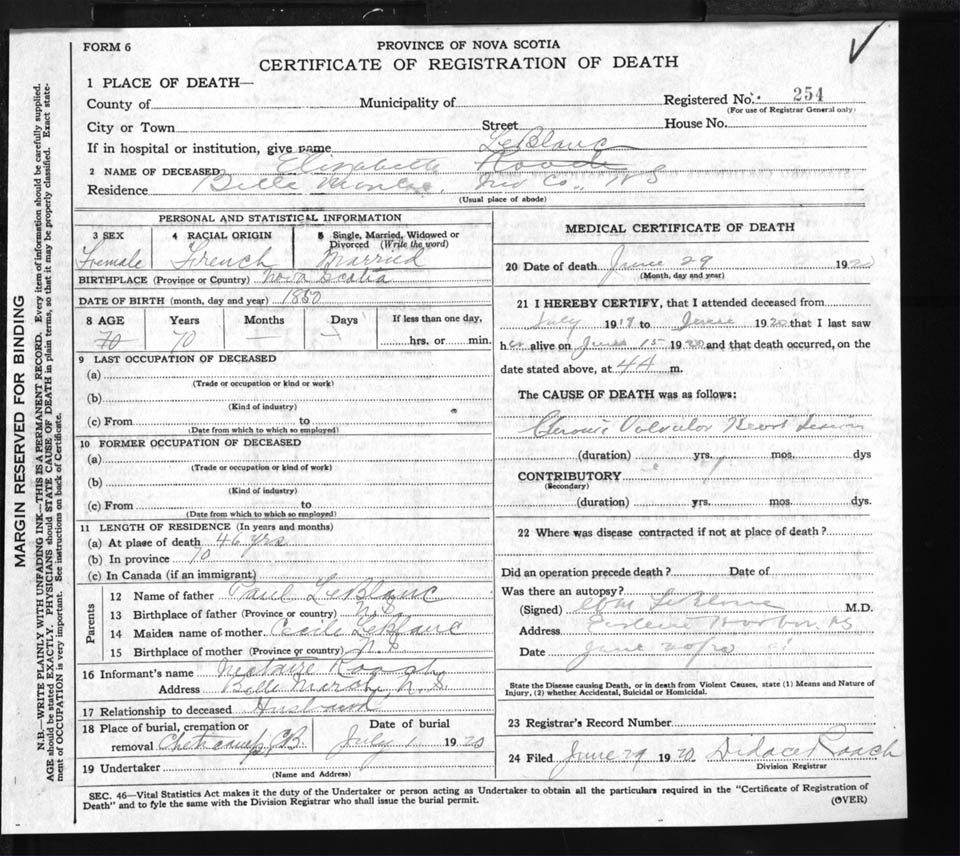 FORM 6
PROVINCE OF NOVA SCOTIA
CERTIFICATE OF REGISTRATION OF DEATH
1 PLACE OF DEATH—
County of Municipality of Registered No. 254
(For use of Registrar General only)
City or Town Street House No.
If in hospital or institution, give name LeBlanc
2 NAME OF DECEASED Elizabeth Roach
Residence Belle Inv Co., N S
(Usual place of abode)
PERSONAL AND STATISTICAL INFORMATION
3 SEX 4 RACIAL ORIGIN 5 Single, Married, Widowed or Divorced (Write the word)
Female French Married
BIRTHPLACE (Province or Country) Nova Scotia
DATE OF BIRTH (month, day and year) 1850
8 AGE Years Months Days If less than one day,
70 70 — — hrs. or min.
9 LAST OCCUPATION OF DECEASED
(a)
(Trade or occupation or kind or work)
(b)
(Kind of industry)
(c) From to
(Date from which to which so employed)
10 FORMER OCCUPATION OF DECEASED
(a)
(Trade or occupation or kind of work)
(b)
(Kind of industry)
(c) From to
(Date from which to which so employed)
11 LENGTH OF RESIDENCE (In years and months)
(a) At place of death 46 yrs
(b) In province 70
(c) In Canada (if an immigrant)
Parents
12 Name of father Paul LeBlanc
13 Birthplace of father (Province or country) N.S.
14 Maiden name of mother Cecile LeBlanc
15 Birthplace of mother (Province or country) N.S.
16 Informant's name Roach
Address Belle N. S.
17 Relationship to deceased Husband
18 Place of burial, cremation or removal Cheticamp, CB Date of burial July 1 1920
19 Undertaker
(Name and Address)
MEDICAL CERTIFICATE OF DEATH
20 Date of death June 29 1920
(Month, day and year)
21 I HEREBY CERTIFY, that I attended deceased from
July 1919 to June 1920 that I last saw
her alive on June 15 1920 and that death occurred, on the
date stated above, at 4 A m.
The CAUSE OF DEATH was as follows:
Chronic Valvular Heart Lesion
(duration) yrs. mos. dys
CONTRIBUTORY
(Secondary)
(duration) yrs. mos. dys.
22 Where was disease contracted if not at place of death?
Did an operation precede death? Date of
Was there an autopsy?
(Signed) LeBlanc M.D.
Address Harbor, NS
Date June
State the Disease causing Death, or in death from Violent Causes, state (1) Means and Nature of Injury, (2) whether Accidental, Suicidal or Homicidal.
23 Registrar's Record Number
24 Filed June 29 1920. Didace Roach
Division Registrar
SEC. 46—Vital Statistics Act makes it the duty of the Undertaker or person acting as Undertaker to obtain all the particulars required in the "Certificate of Registration of
Death" and to fyle the same with the Division Registrar who shall issue the burial permit.
(OVER)
MARGIN RESERVED FOR BINDING
N.B.—WRITE PLAINLY WITH UNFADING INK—THIS IS A PERMANENT RECORD. Every item of information should be carefully supplied.
AGE should be stated EXACTLY. PHYSICIANS should STATE CAUSE OF DEATH in plain terms, so that it may be properly classified. Exact state-
ment of OCCUPATION is very important. See instructions on back of Certificate.